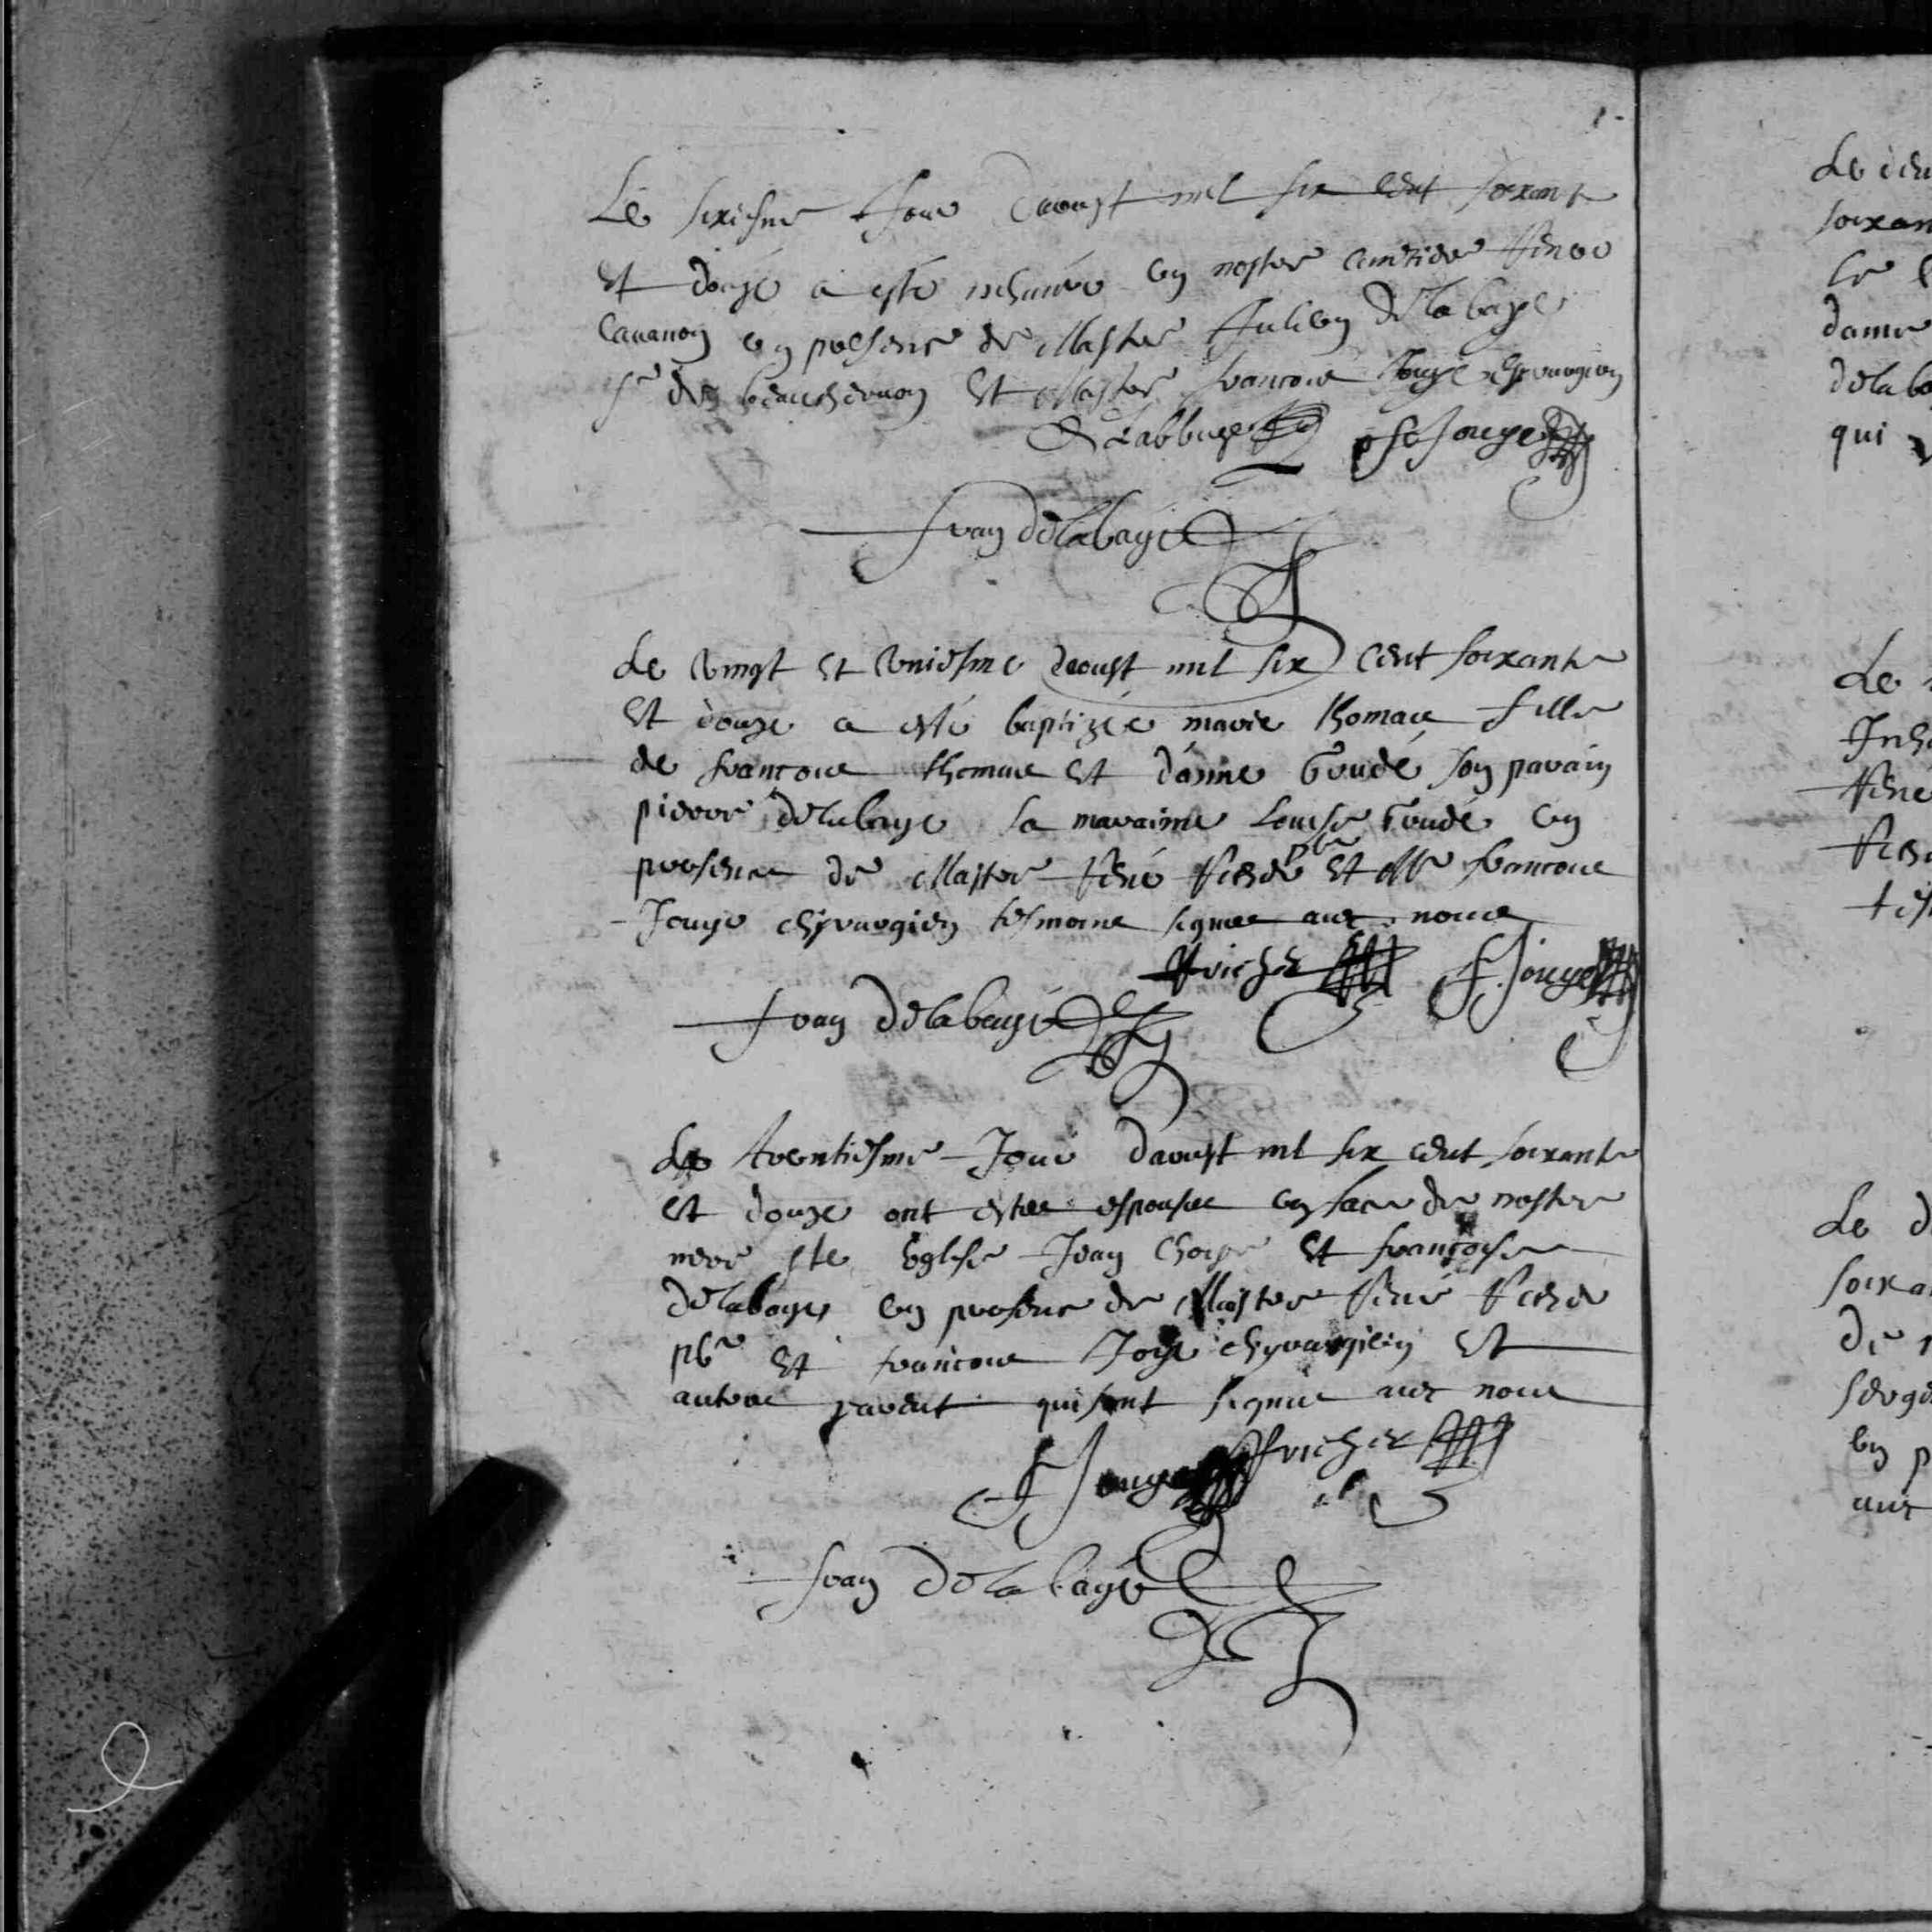 Le sixiesme Jour daoust mil six cent soixante
et douze a esté inhumée en nostre cimetiere
en presence de Maistre Julien Delabaye
sr de et Maistre francois Jouye chyrurgien
Delabbaye Jouye
Jean Delabaye
Le vingt et uniesme daoust mil six cent soixante
et douze a esté baptizée marie thomas fille
de francois thomas et danne Gendé son parain
pierre delabaye sa maraine Louise Gendé en
presence de Maistre René Richer pbre et Mre francois
Jouye chyrurgien tesmoins signes avec nous
Richer F Jouye
Jean Delabaye
Le trentiesme Jour daoust mil six cent soixante
et douze ont estes espouses en face de nostre
mere ste Eglise Jean et francoise
delabaye en presence de Maistre René Richer
pbre et francois Joye chyrurgien et
autres parents qui sont signes avec nous
F Jouye Richer
Jean Delabaye
Le
soixan
dame
delaba
qui
Le
Inh
René
Le d
soixa
de
en p
avec